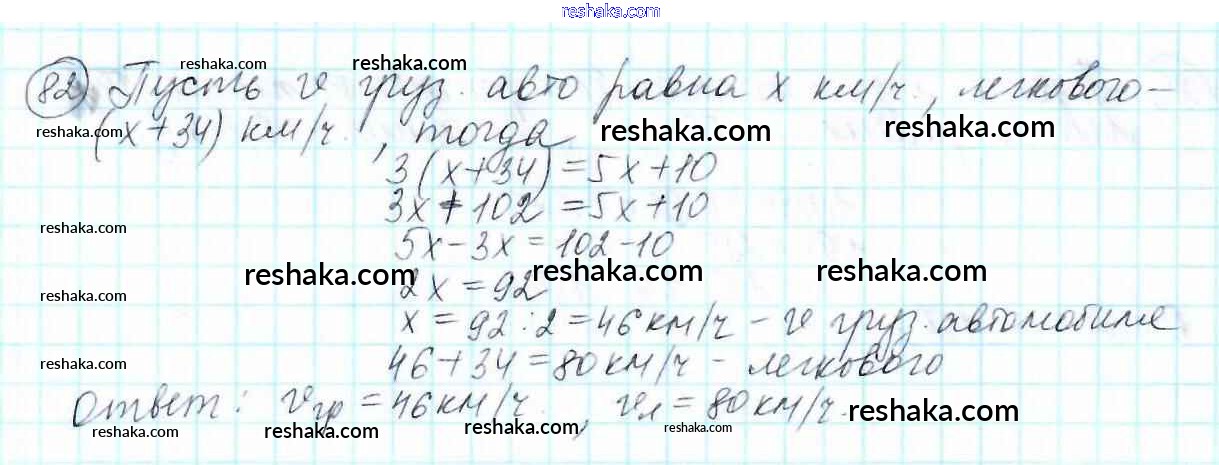 reshaka.com
reshaka.com reshaka.com
82) Пусть v груз. авто равна x км/ч., легкового –
reshaka.com (x+34) км/ч., тогда reshaka.com reshaka.com
3(x+34)=5x+10
3x+102=5x+10
reshaka.com
5x-3x=102-10
reshaka.com reshaka.com reshaka.com
2x=92
reshaka.com
x=92:2=46км/ч – v груз. автомобиля
46+34=80км/ч – легкового
reshaka.com
Ответ: vгр=46км/ч, vл=80км/ч. reshaka.com
reshaka.com reshaka.com reshaka.com reshaka.com